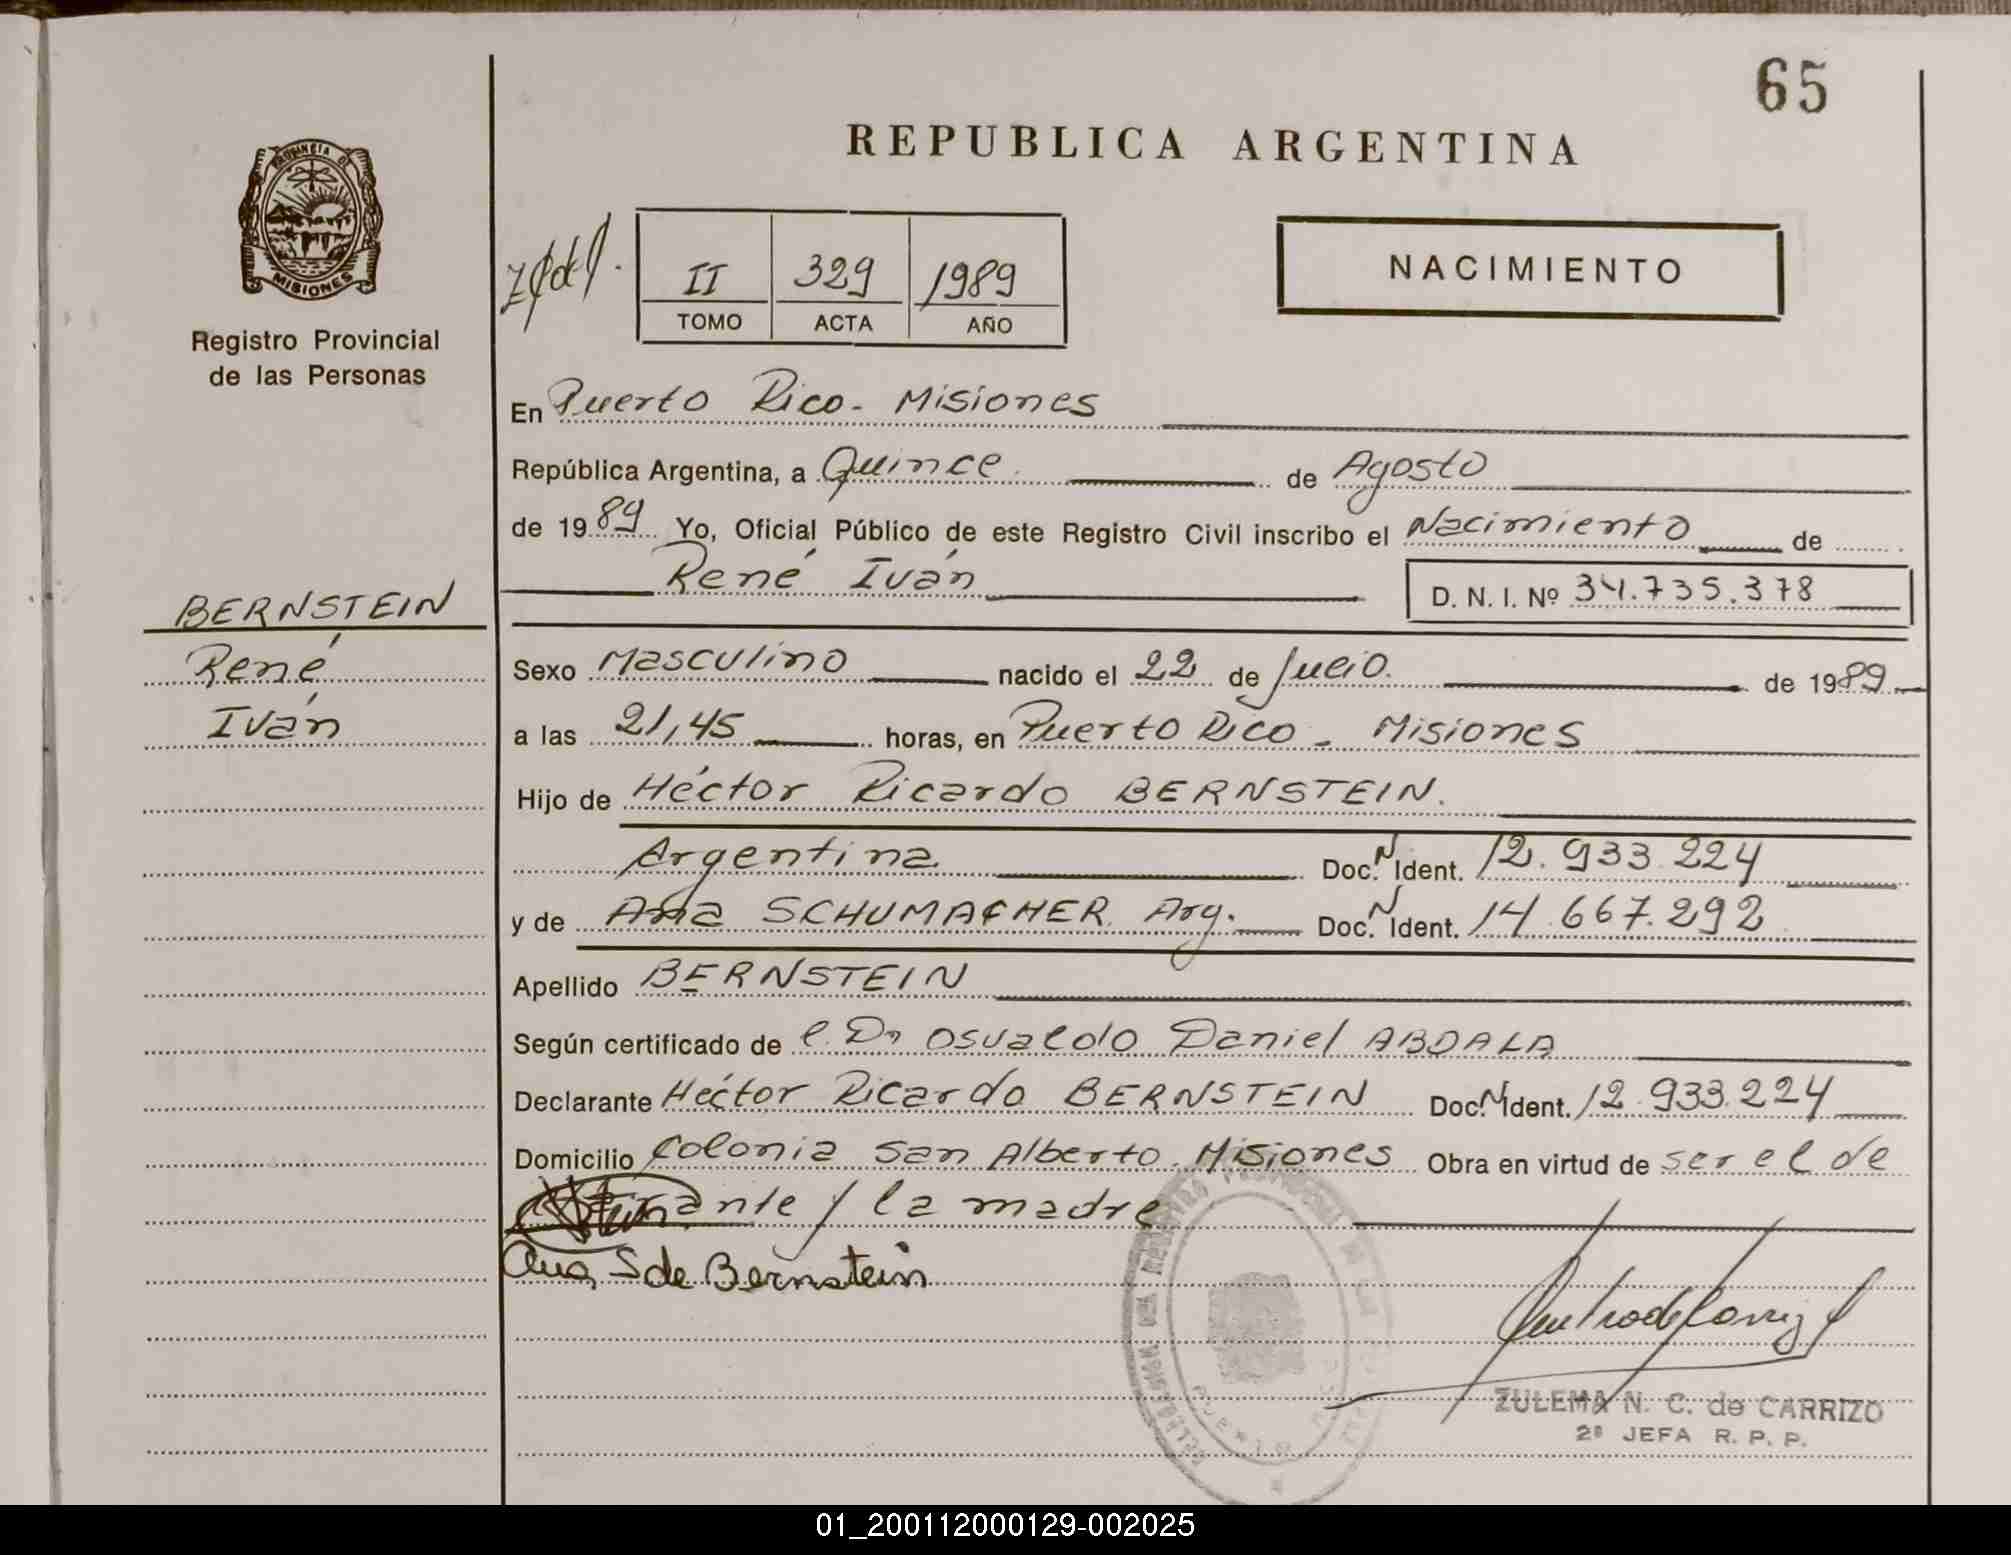 65
REPUBLICA ARGENTINA
PROVINCIA DE
MISIONES
Registro Provincial
de las Personas
II 329 1989
TOMO ACTA AÑO
NACIMIENTO
En Puerto Rico - Misiones
República Argentina, a Quince de Agosto
de 1989 Yo, Oficial Público de este Registro Civil inscribo el Nacimiento de
René Iván
D. N. I. Nº 34.735.378
BERNSTEIN
René
Iván
Sexo Masculino nacido el 22 de Julio. de 1989
a las 21,45 horas, en Puerto Rico - Misiones
Hijo de Héctor Ricardo BERNSTEIN.
Argentina. Doc. N Ident. 12.933.224
y de Ana SCHUMACHER. Arg. Doc. N Ident. 14.667.292
Apellido BERNSTEIN
Según certificado de l. Dr Osvaldo Daniel ABDALA
Declarante Héctor Ricardo BERNSTEIN Doc. N Ident. 12.933.224
Domicilio Colonia San Alberto. Misiones Obra en virtud de ser el de
ante y la madre
Ana S de Bernstein
ZULEMA N. C. de CARRIZO
2ª JEFA R. P. P.
01_200112000129-002025